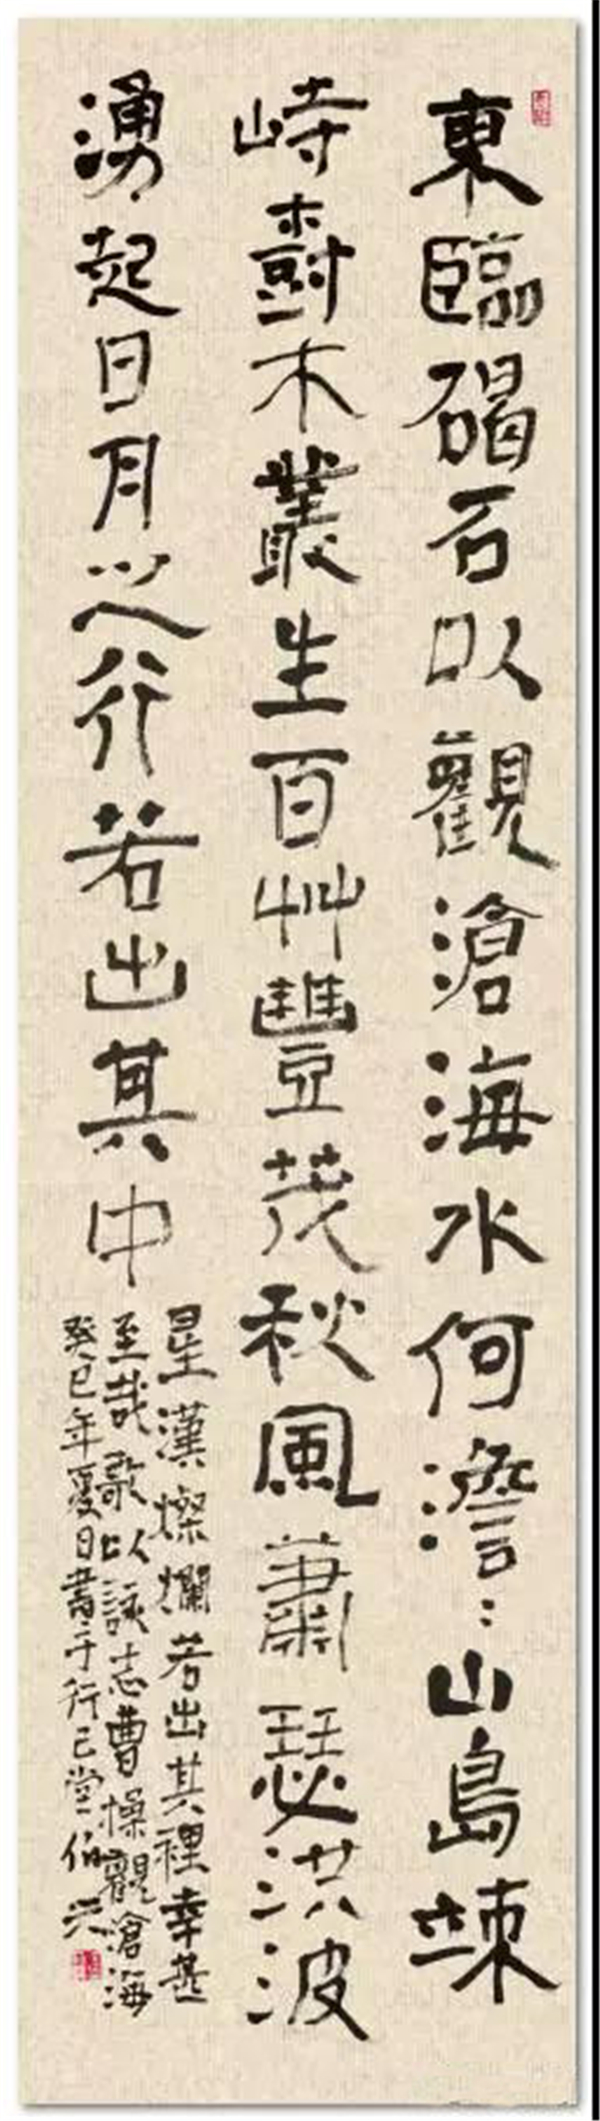 東臨碣石以觀滄海水何澹〻山島竦
峙樹木叢生百艸豐茂秋風蕭瑟洪波
湧起日月之行若出其中
星漢燦爛若出其裡幸甚
至哉歌以詠志曹操觀滄海
癸巳年夏日書于行己堂伯兴